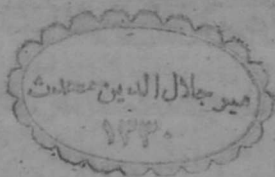 میر جلال الدین محدث
۱۳۳۰